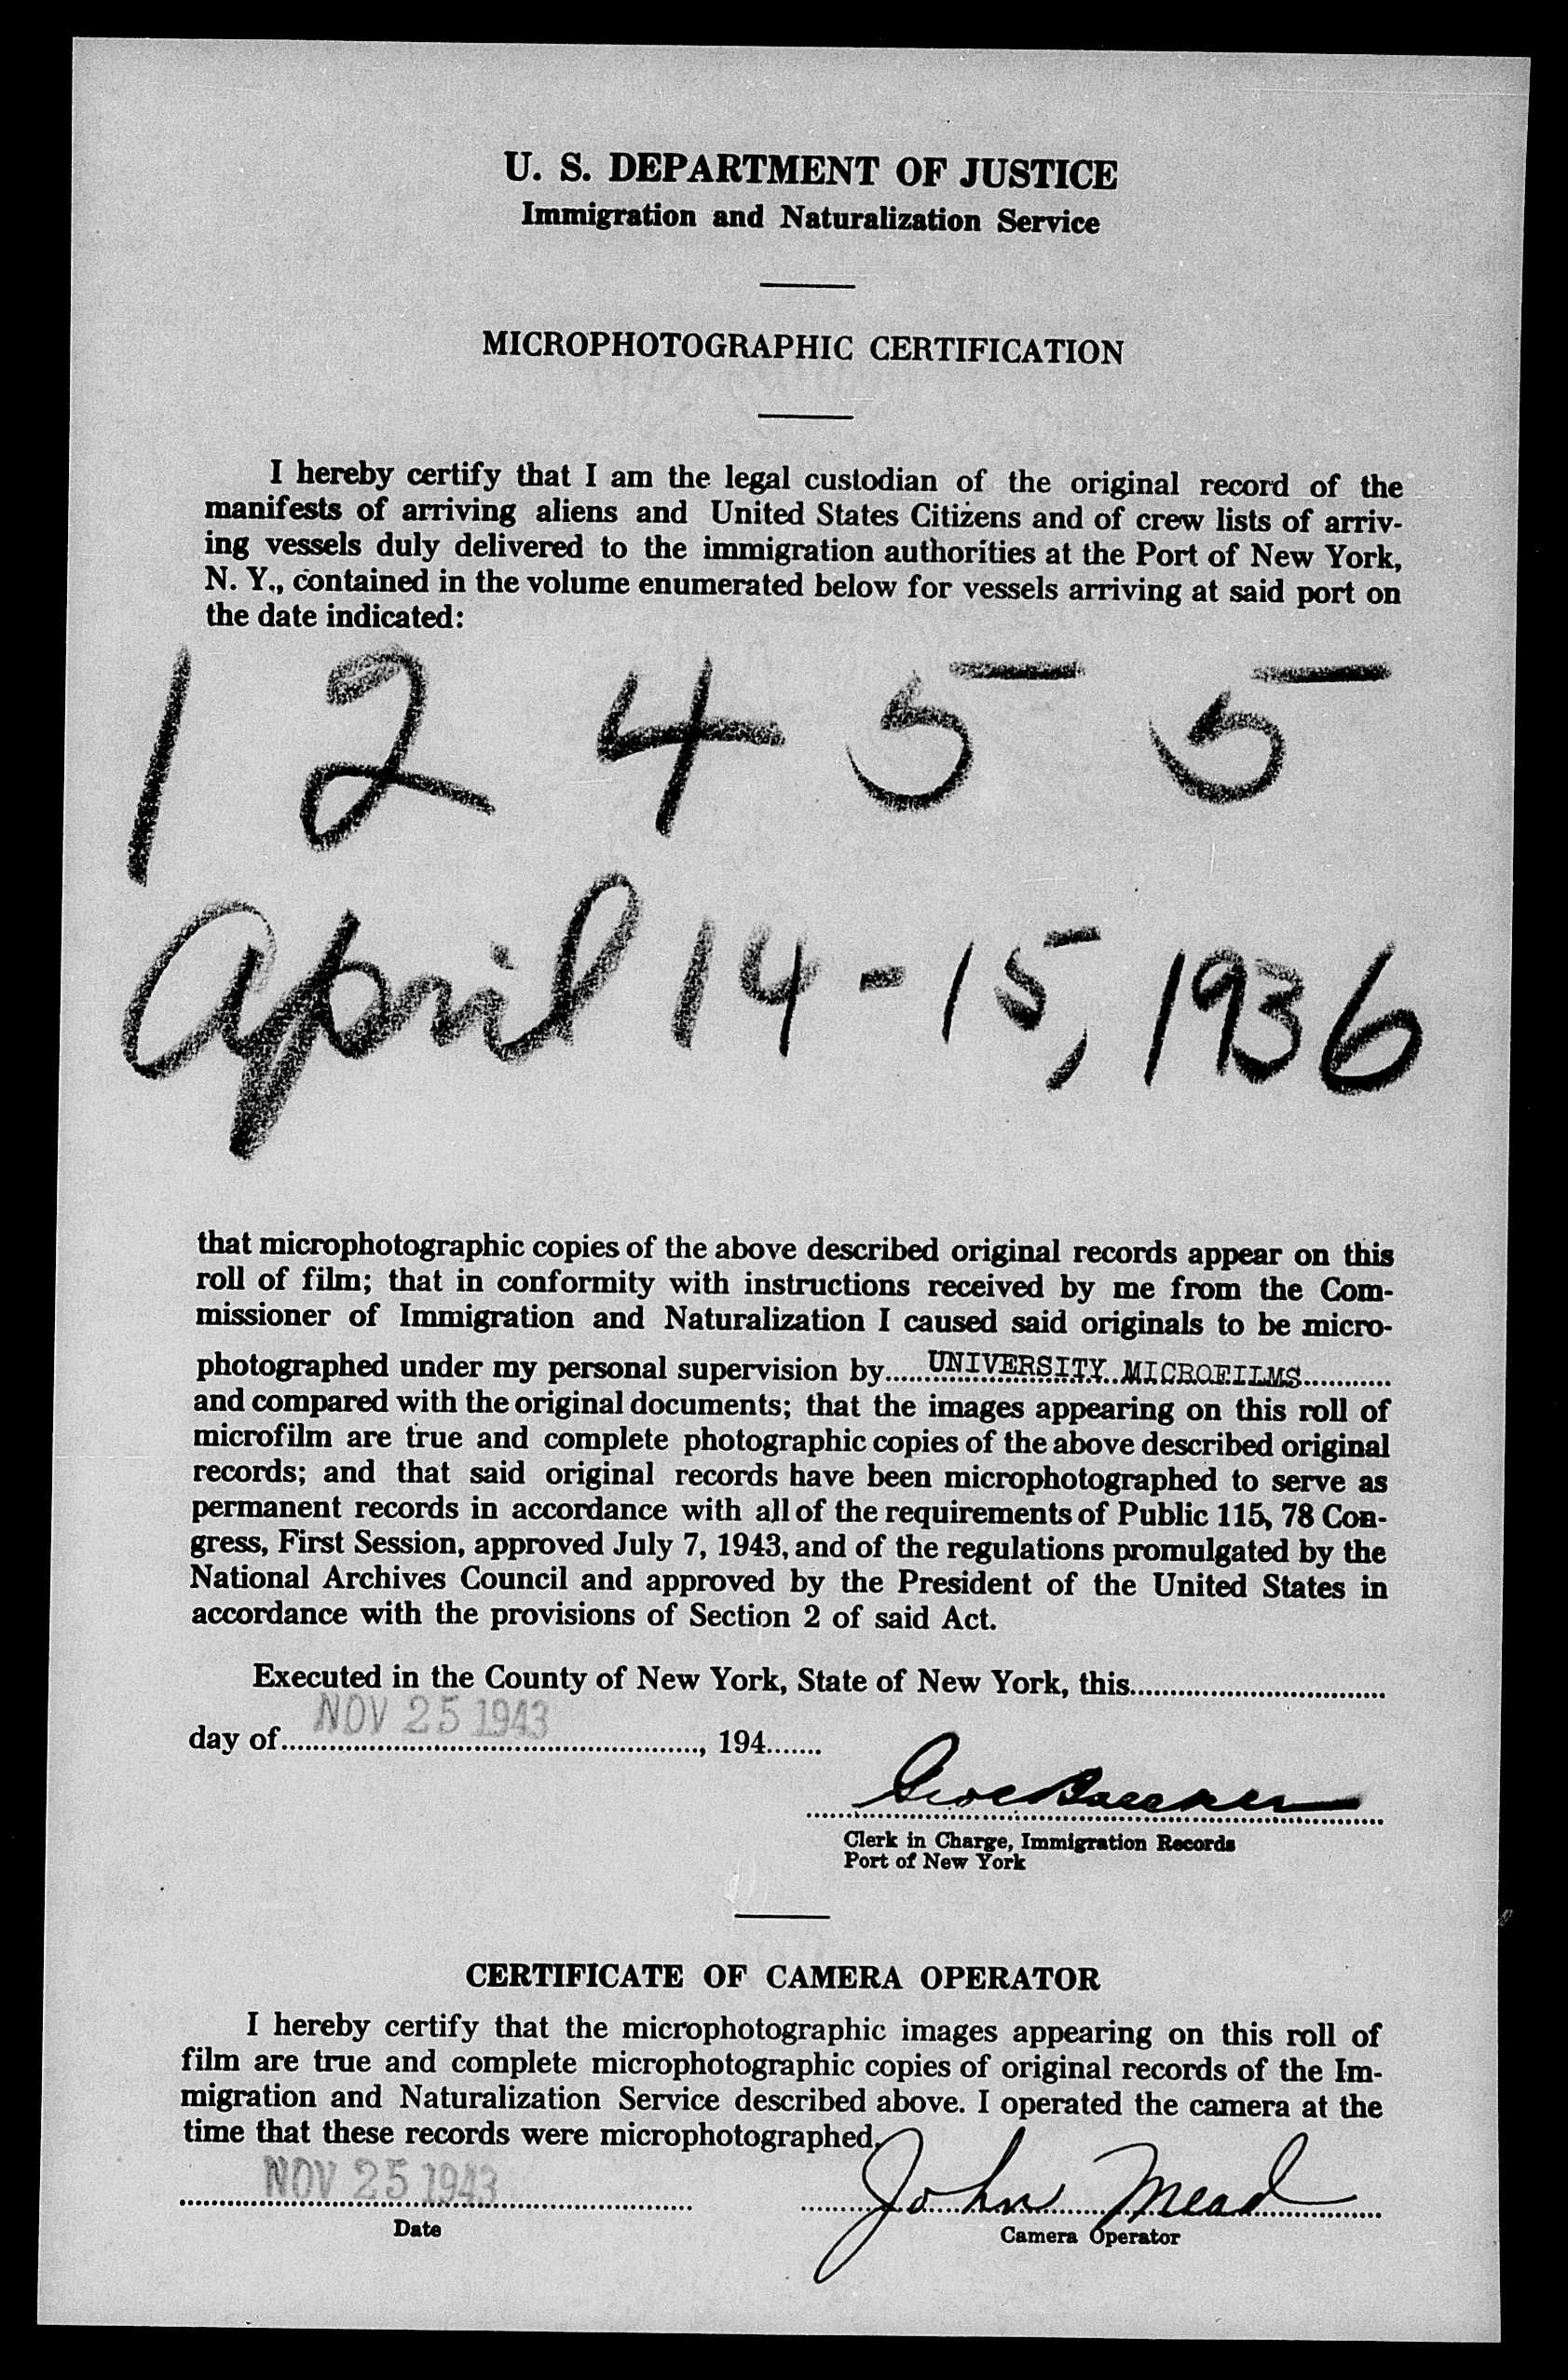 U. S. DEPARTMENT OF JUSTICE
Immigration and Naturalization Service
MICROPHOTOGRAPHIC CERTIFICATION
I hereby certify that I am the legal custodian of the original record of the
manifests of arriving aliens and United States Citizens and of crew lists of arriv-
ing vessels duly delivered to the immigration authorities at the Port of New York,
N. Y., contained in the volume enumerated below for vessels arriving at said port on
the date indicated:
1 2 4 5 5
April 14-15, 1936
that microphotographic copies of the above described original records appear on this
roll of film; that in conformity with instructions received by me from the Com-
missioner of Immigration and Naturalization I caused said originals to be micro-
photographed under my personal supervision by......UNIVERSITY MICROFILMS...........
and compared with the original documents; that the images appearing on this roll of
microfilm are true and complete photographic copies of the above described original
records; and that said original records have been microphotographed to serve as
permanent records in accordance with all of the requirements of Public 115, 78 Con-
gress, First Session, approved July 7, 1943, and of the regulations promulgated by the
National Archives Council and approved by the President of the United States in
accordance with the provisions of Section 2 of said Act.
Executed in the County of New York, State of New York, this................................
NOV 25 1943
day of...................................................., 194.......
Clerk in Charge, Immigration Records
Port of New York
CERTIFICATE OF CAMERA OPERATOR
I hereby certify that the microphotographic images appearing on this roll of
film are true and complete microphotographic copies of original records of the Im-
migration and Naturalization Service described above. I operated the camera at the
time that these records were microphotographed.
NOV 25 1943 John Mead
Date
Camera Operator